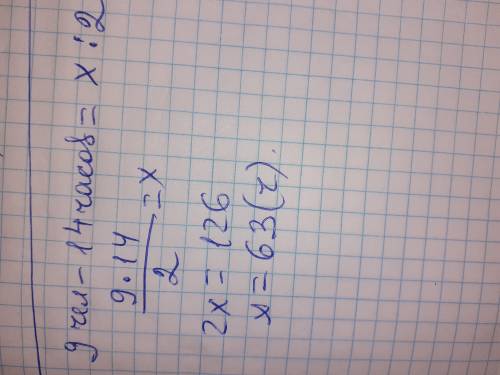 9 чел - 14 часов = x : 2
9 · 14 / 2 = x
2x = 126
x = 63 (ч).